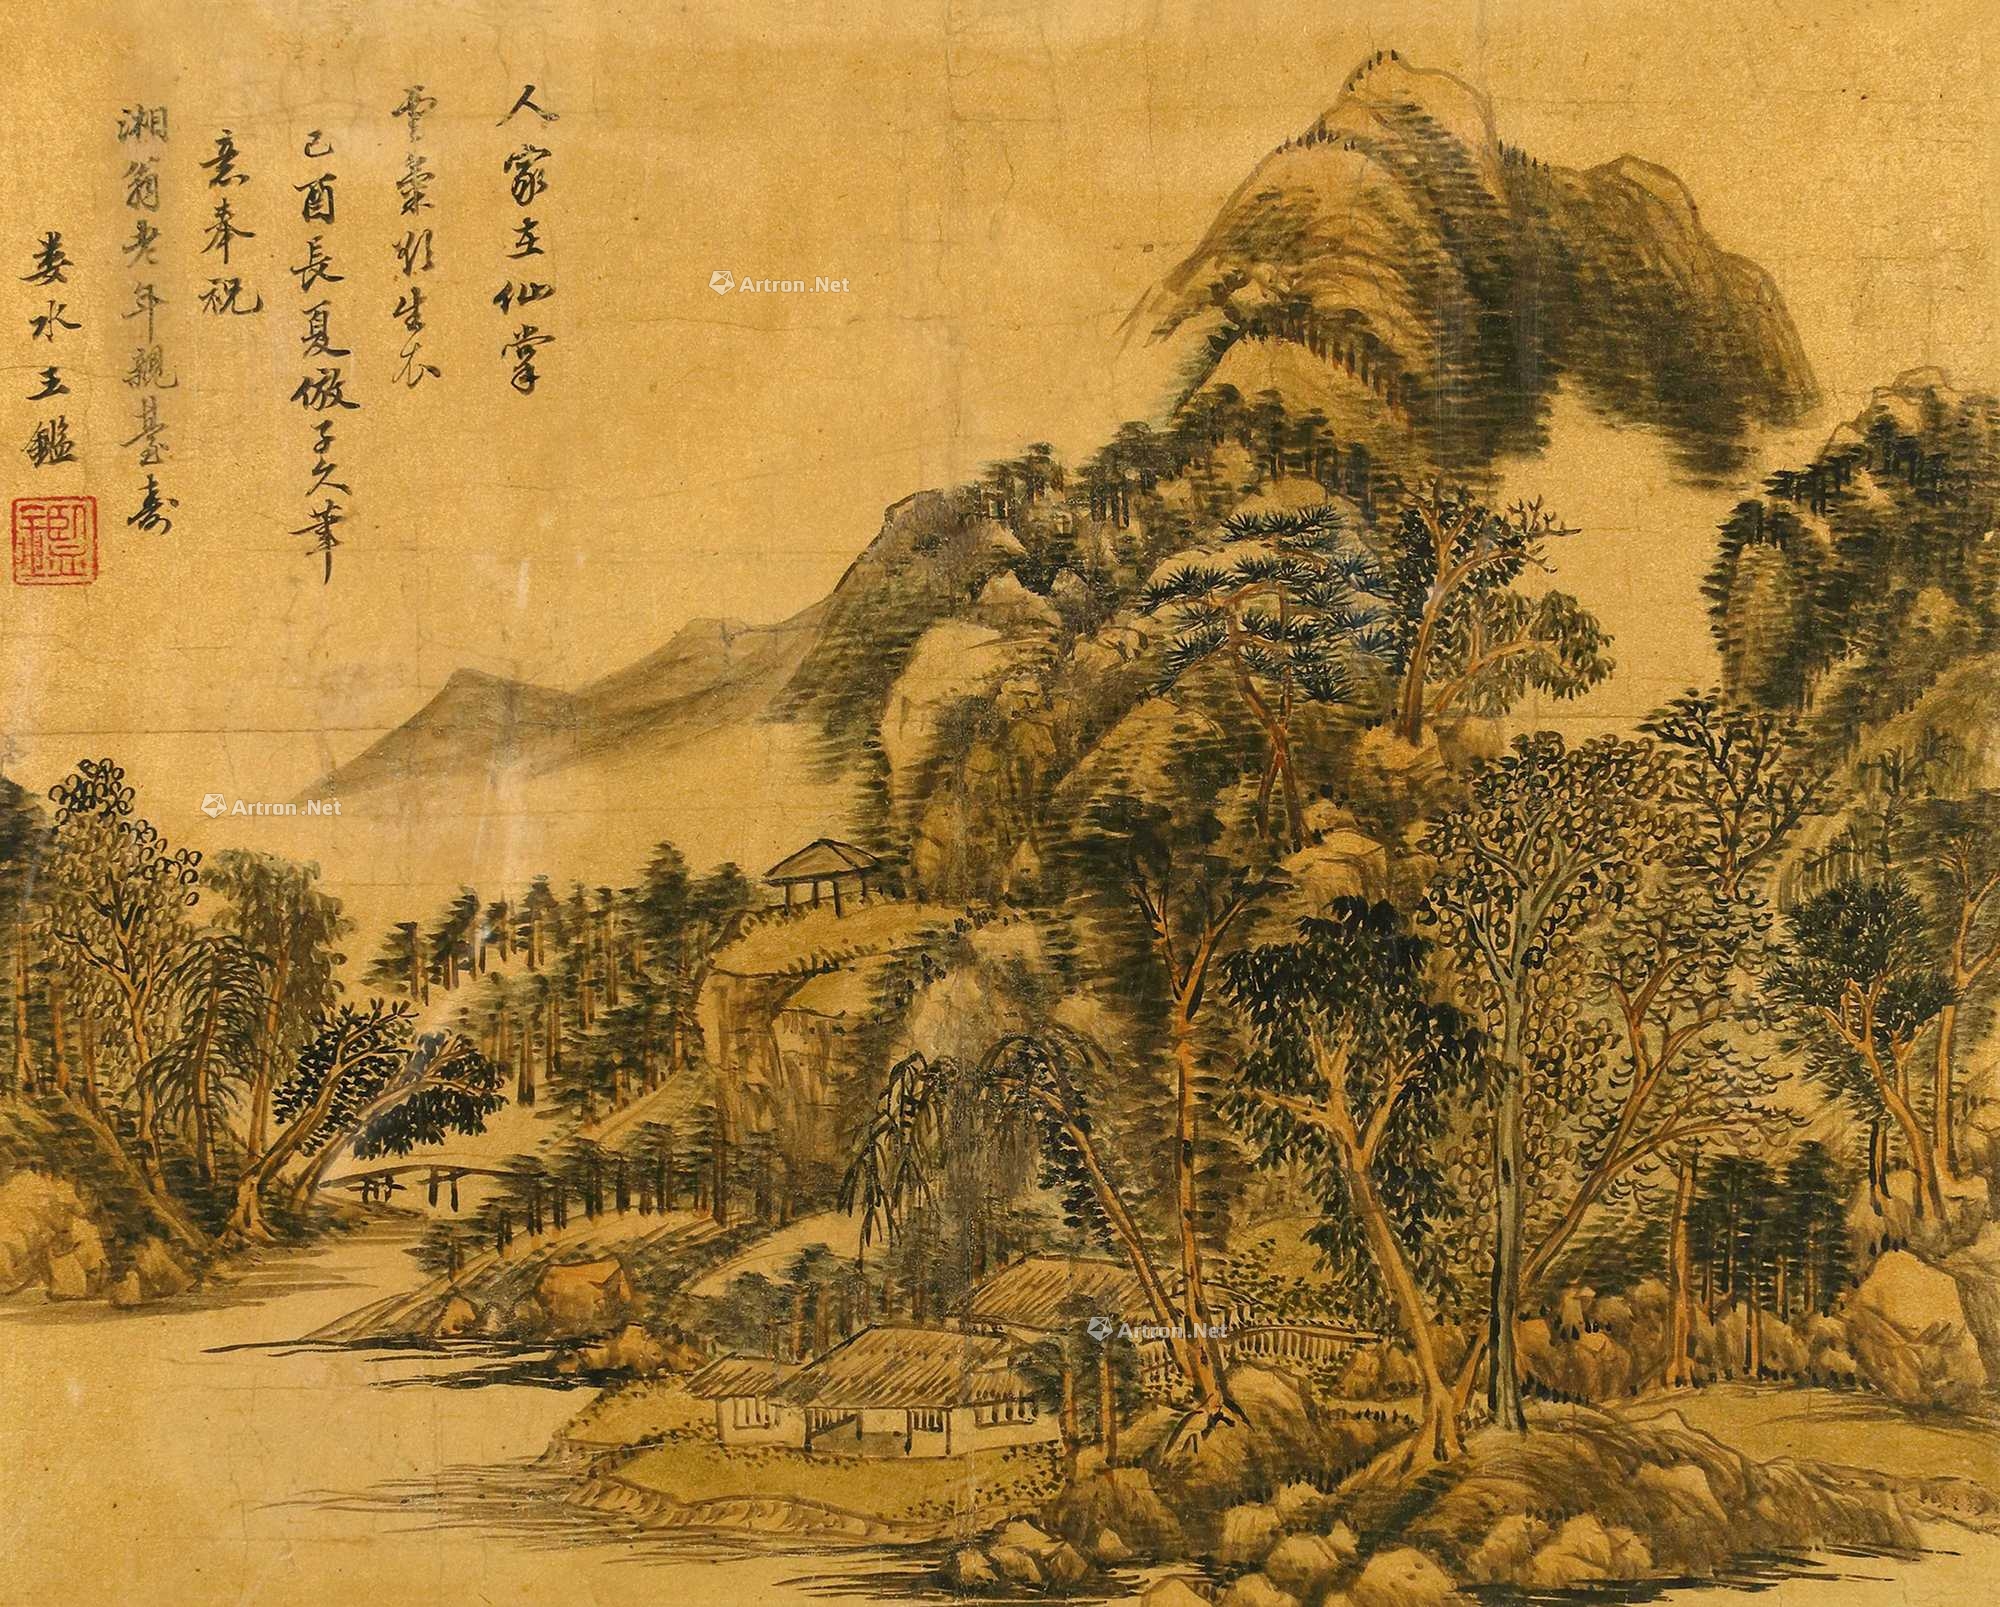 人家在仙掌
雲氣欲生衣
己酉長夏倣子久筆
意奉祝
湘翁老年親臺壽
婁水王鑑
Artron.Net
Artron.Net
Artron.Net